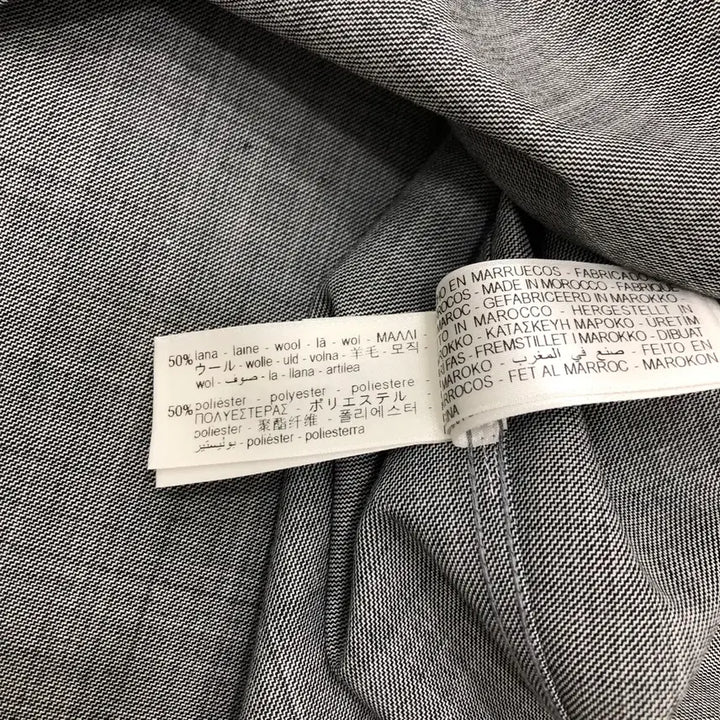 50% lana - laine - wool - lã - wol - ΜΑΛΛΙ -
ウール - wolle - uld - volna - 羊毛 - 모직
wol - صوف - la - llana - artilea
50% poliéster - polyester - poliestere -
ΠΟΛΥΕΣΤΕΡΑΣ - ポリエステル
poliester - 聚酯纤维 - 폴리에스터 -
بوليستير - polièster - poliesterra
HO EN MARRUECOS - FABRICADO
ROCOS - MADE IN MOROCCO - FABRIQUÉ
OCCO - GEFABRICEERD IN MAROKKO -
TO IN MAROCCO - HERGESTELLT IN
ROKKO - ΚΑΤΑΣΚΕΥΗ ΜΑΡΟΚΟ - ÜRETIM
RIFAS - FREMSTILLET I MAROKKO - DIBUAT
MAROKO - صنع في المغرب - FEITO EN
ARROCOS - FET AL MARROC - MAROKON
INA